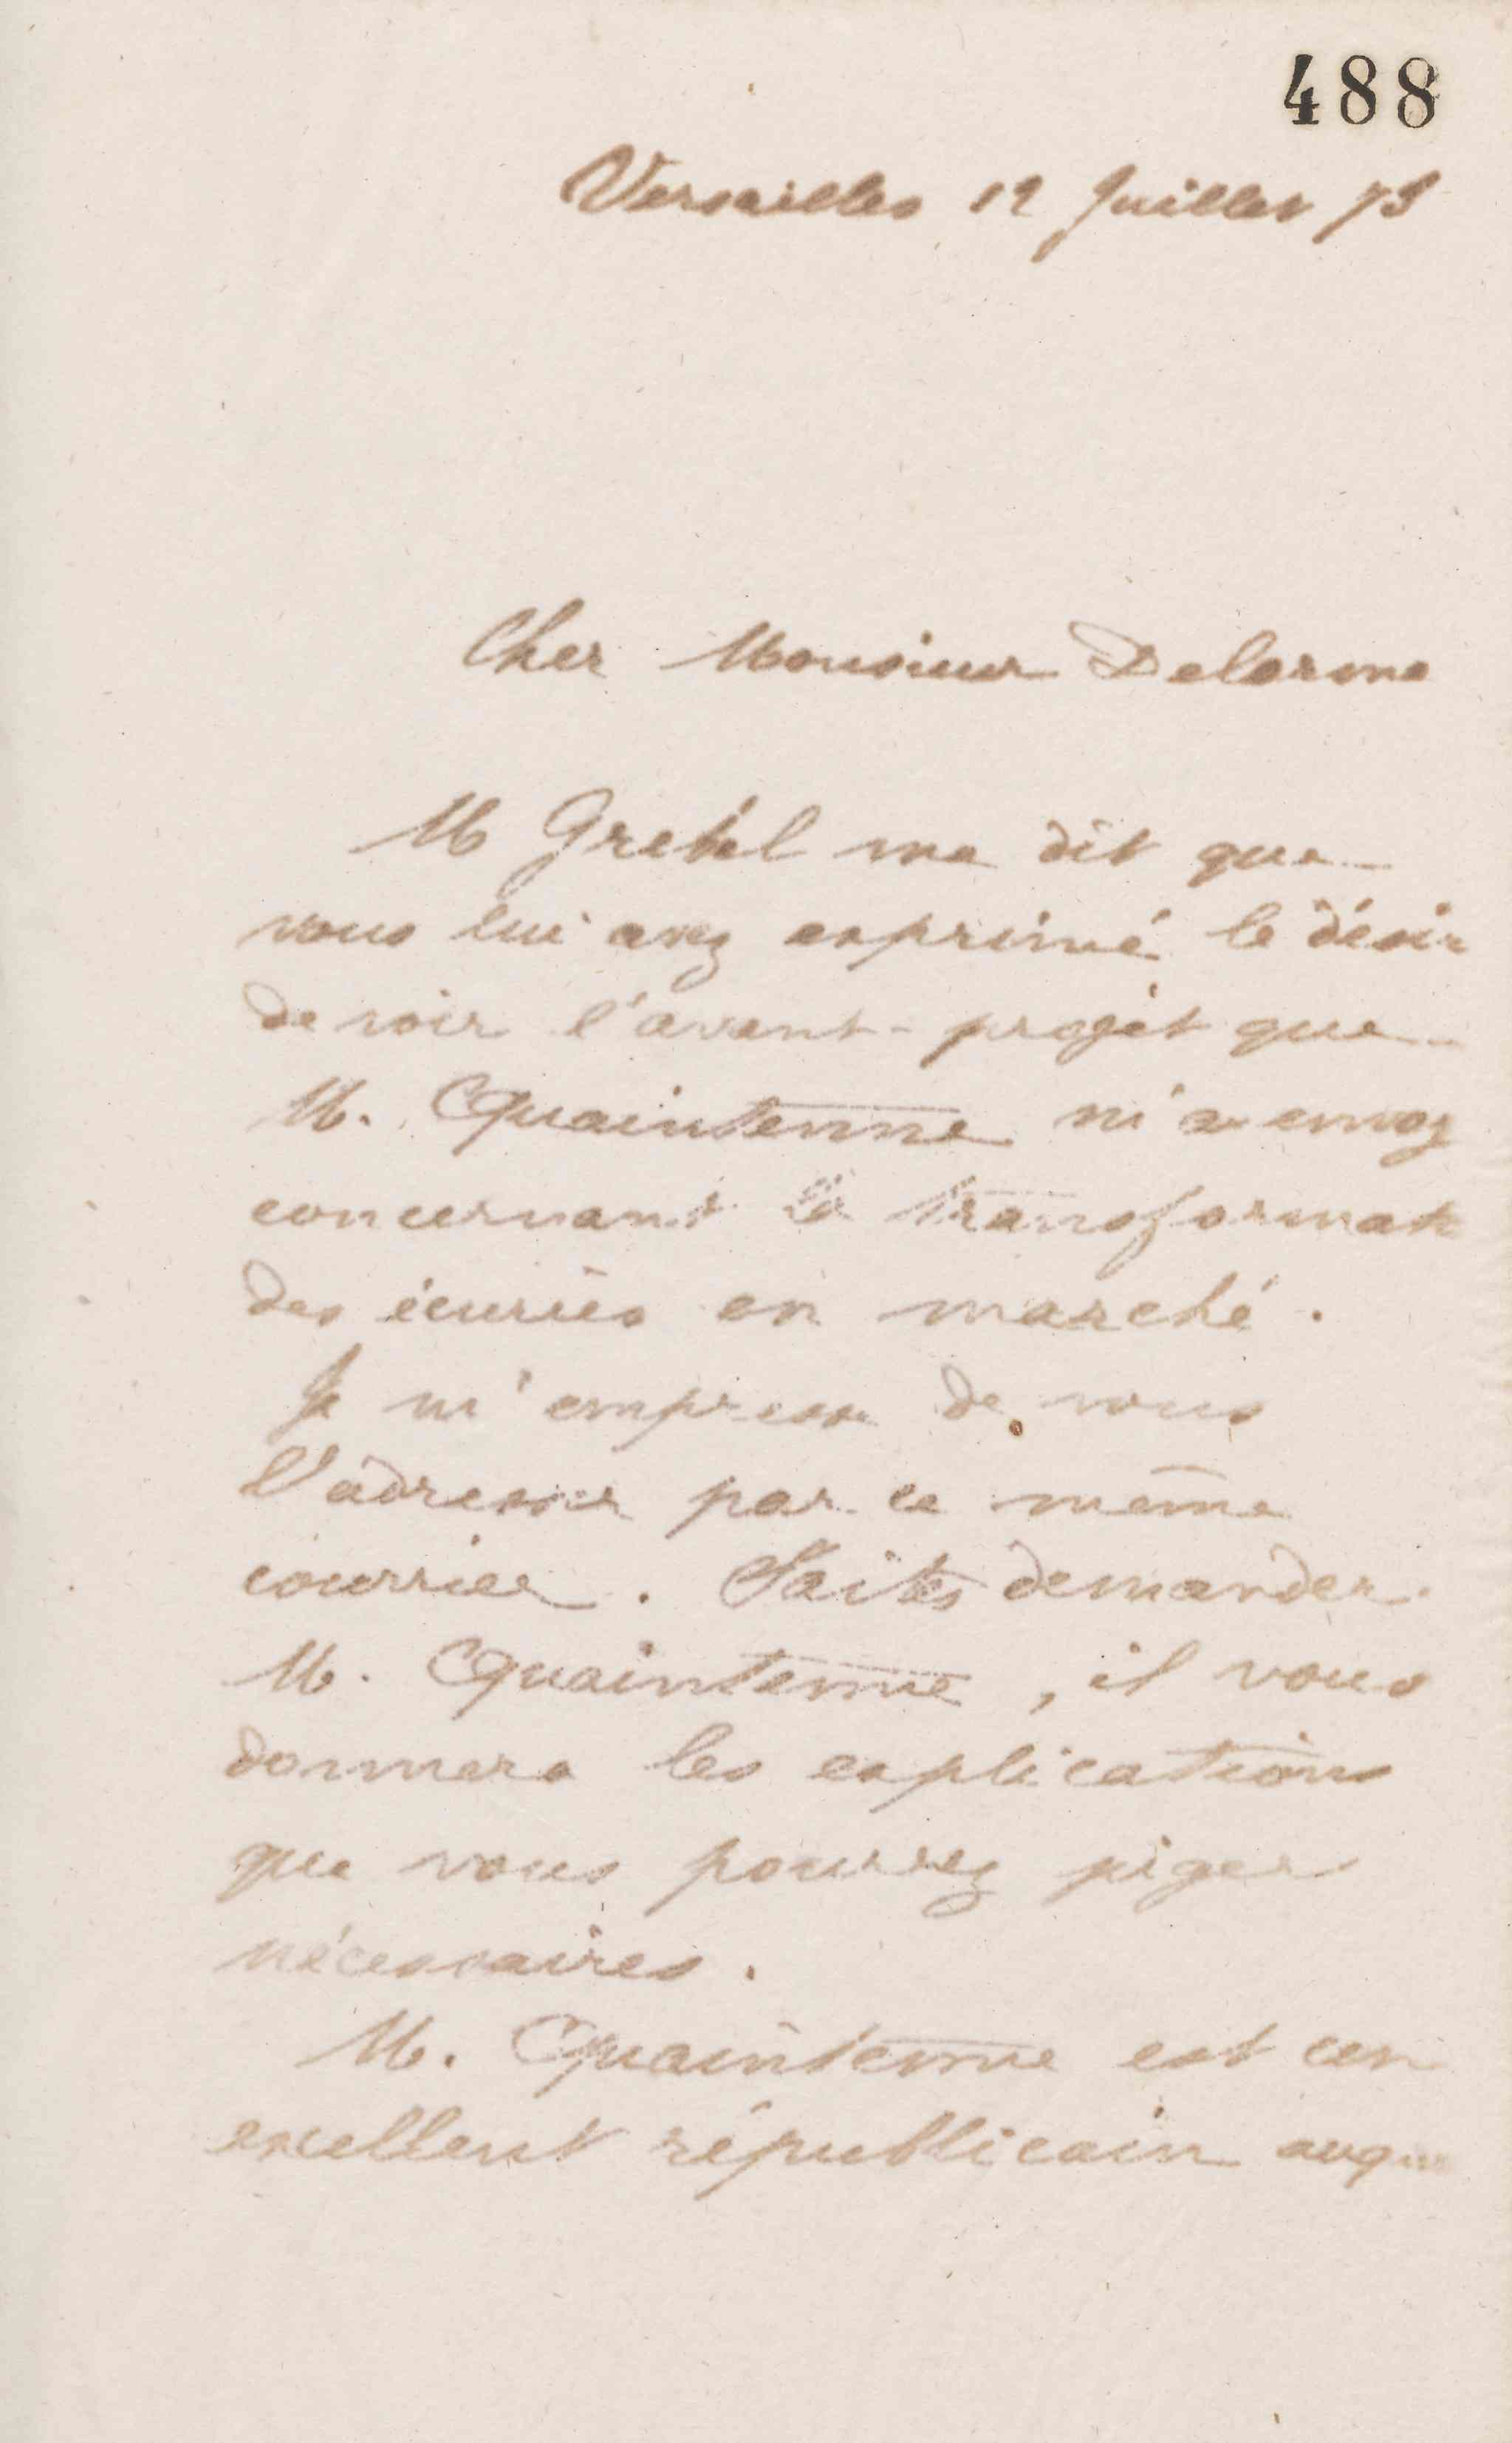 488
Versailles 12 Juillet 73
Cher Monsieur Delorme
M Grebel me dit que
vous lui avez exprimé le désir
de voir l'avant-projet que
M. Quaintenne m'a envoy
concernant la transformat
des écuries en marché.
Je m'empresse de vous
l'adresser par ce même
courrier. Faites demander
M. Quaintenne, il vous
donnera les explications
que vous pourrez juger
nécessaires.
M. Quaintenne est un
excellent républicain auqu